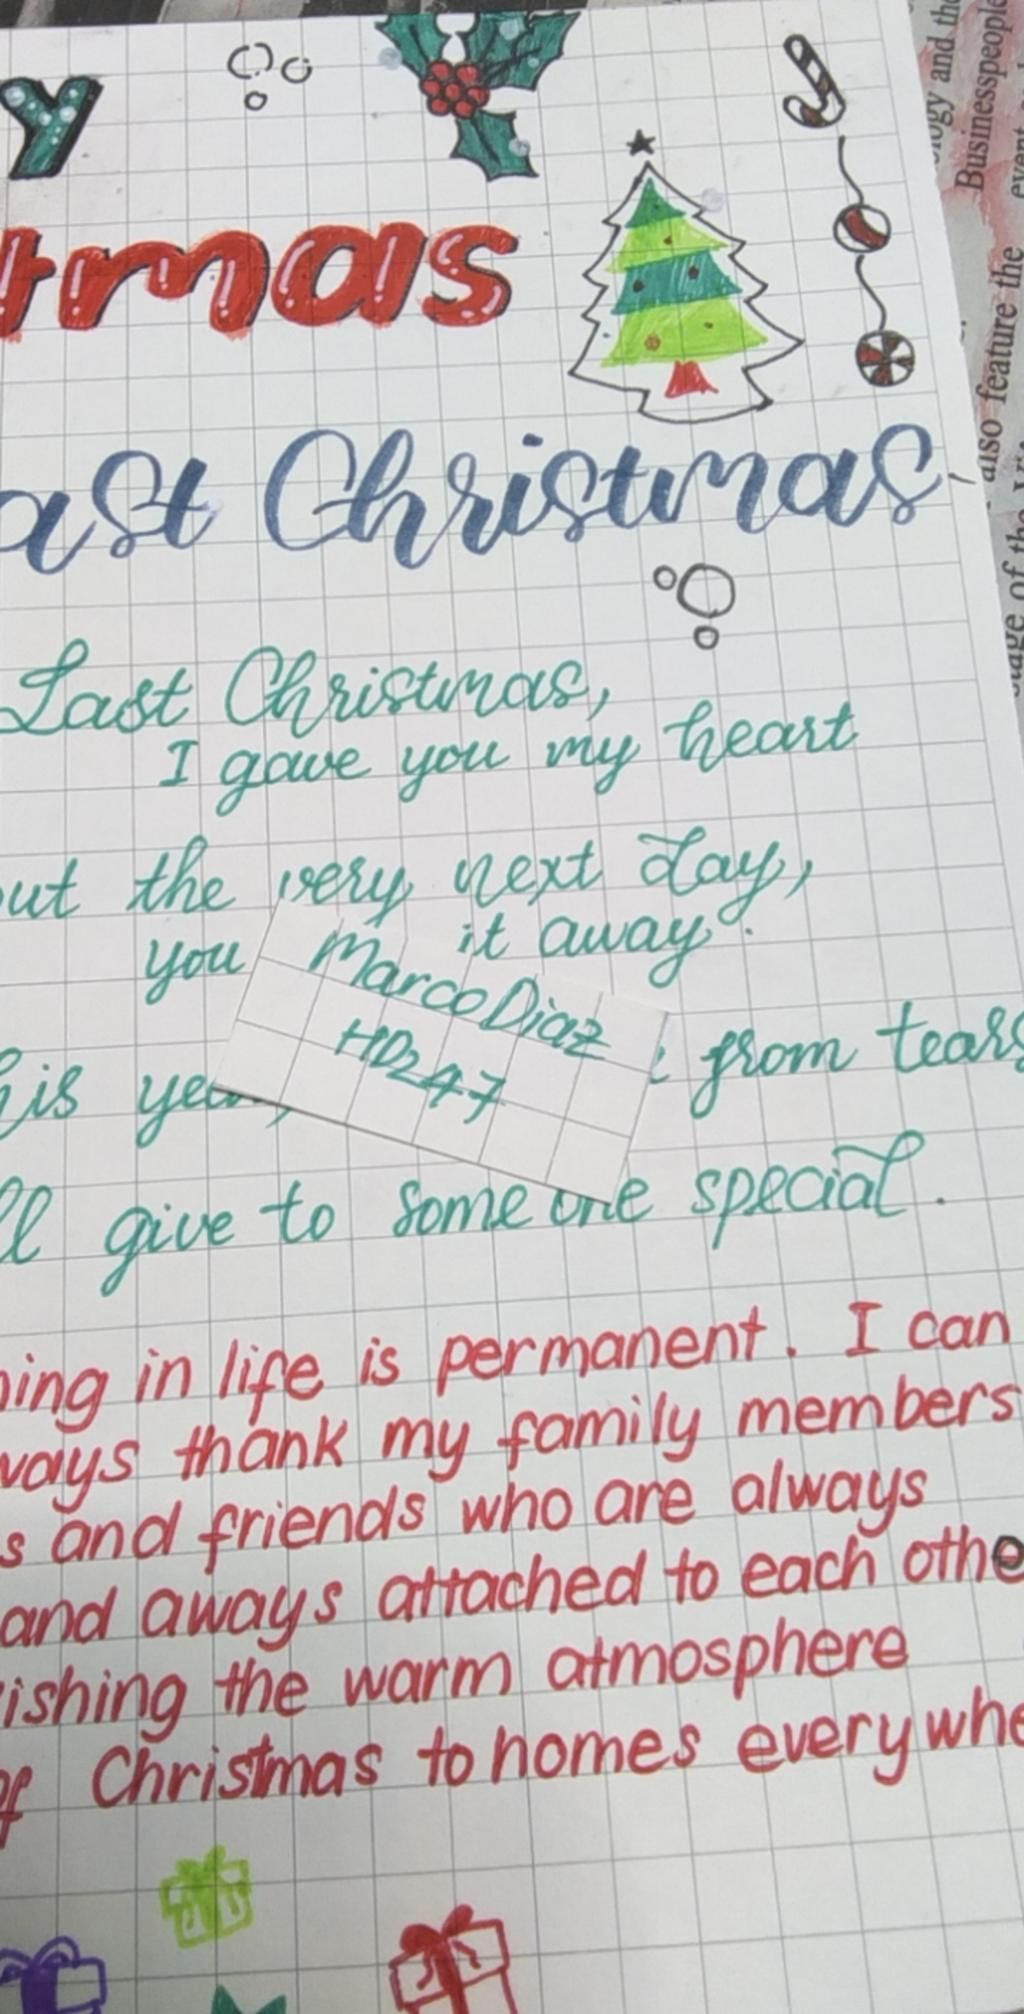 y
tmas
ast Christmas
Last Christmas,
I gave you my heart
out the very next day,
you it away.
Marco Diaz
HD247
his year, from tears
ll give to someone special.
hing in life is permanent. I can
ways thank my family members
s and friends who are always
and aways attached to each othe
ishing the warm atmosphere
of Christmas to homes everywhe
ology and the
Businesspeople
event
also feature the
stage of the